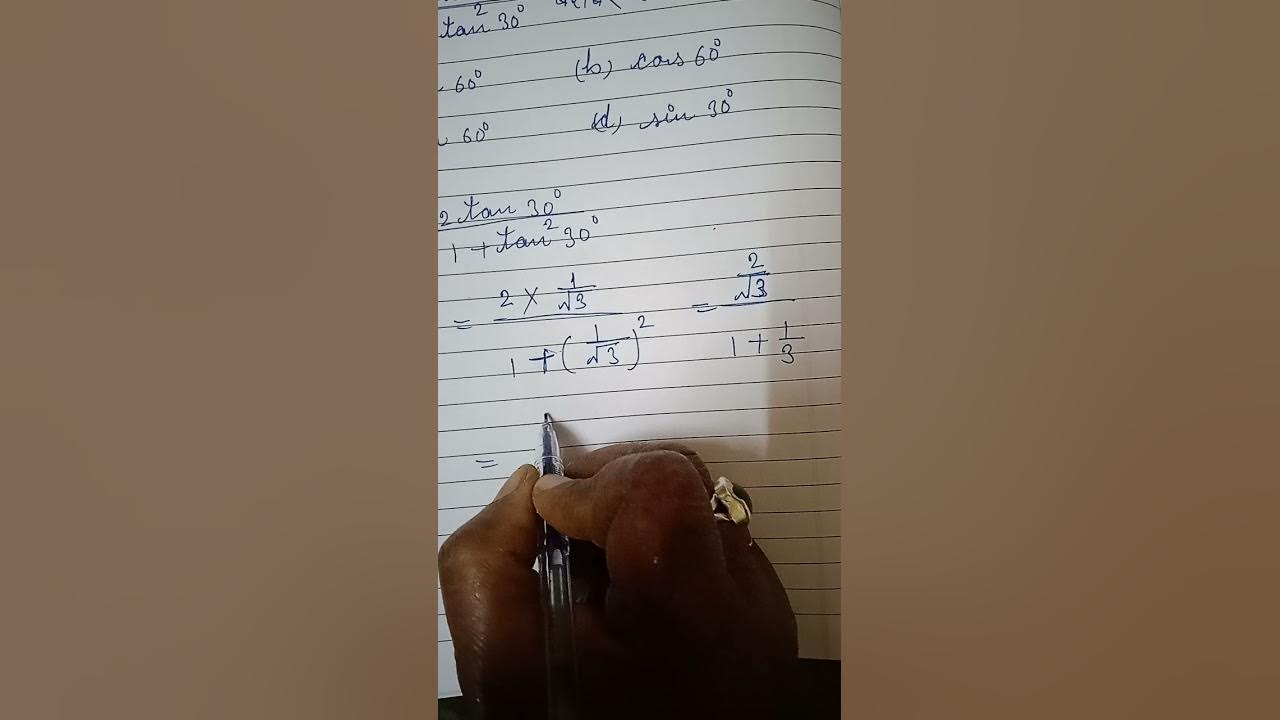 tan² 30°
60° (b) cos 60°
60° (d) sin 30°
2 tan 30°
1 + tan² 30°
= 2 × 1/√3 / 1 + (1/√3)² = 2/√3 / 1 + 1/3
=